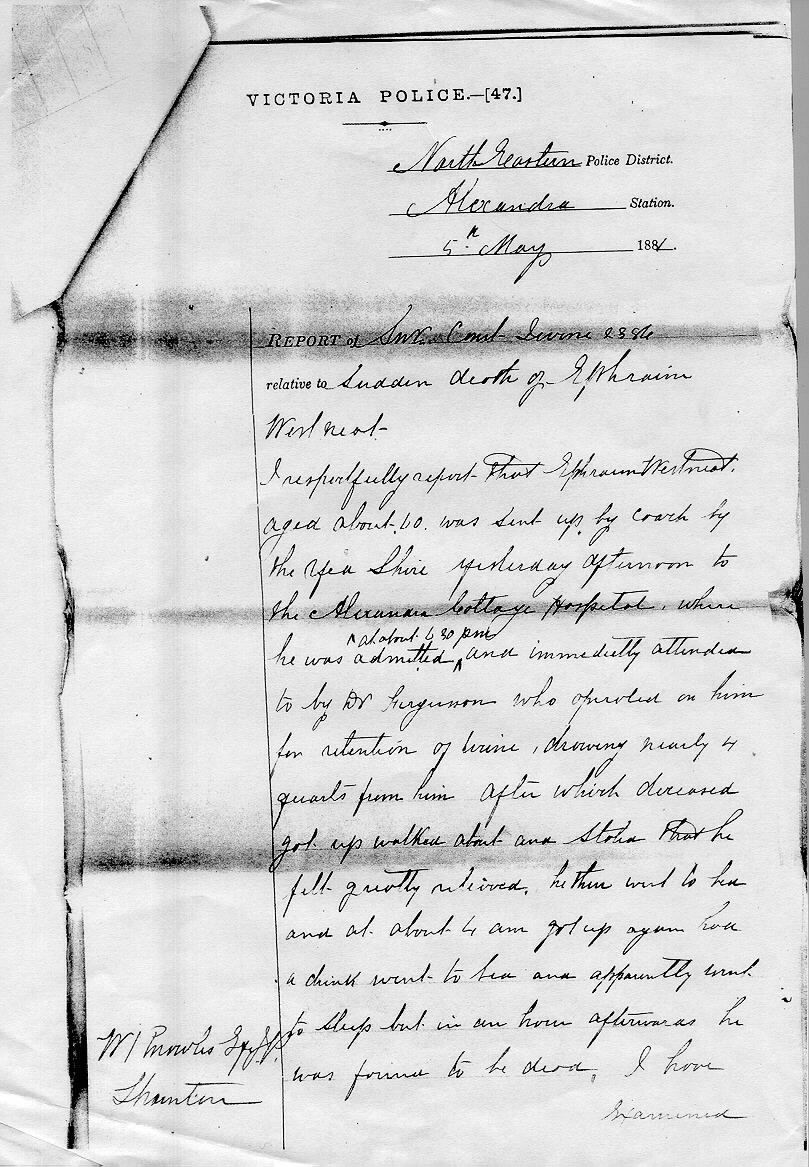 VICTORIA POLICE.—[47.]
North Eastern Police District.
Alexandra Station.
5th May 1881.
REPORT of Const Devine 2886
relative to Sudden death of Ephraim
Westneat
I respectfully report that Ephraim Westneat,
aged about 60. was sent up by coach by
the Yea Shire yesterday afternoon to
the Alexandra Cottage Hospital, where
at about 4 30 pm
he was admitted and immedietly attended
to by Dr Ferguson who operated on him
for retention of urine, drawing nearly 4
quarts from him after which deceased
got up walked about and stated that he
felt greatly relieved, he then went to bed
and at about 4 am got up again had
a drink went to bed and apparently went
to sleep but in an hour afterwards he
was found to be dead, I have
Examined
W Knowles Esq J.P.
Thornton